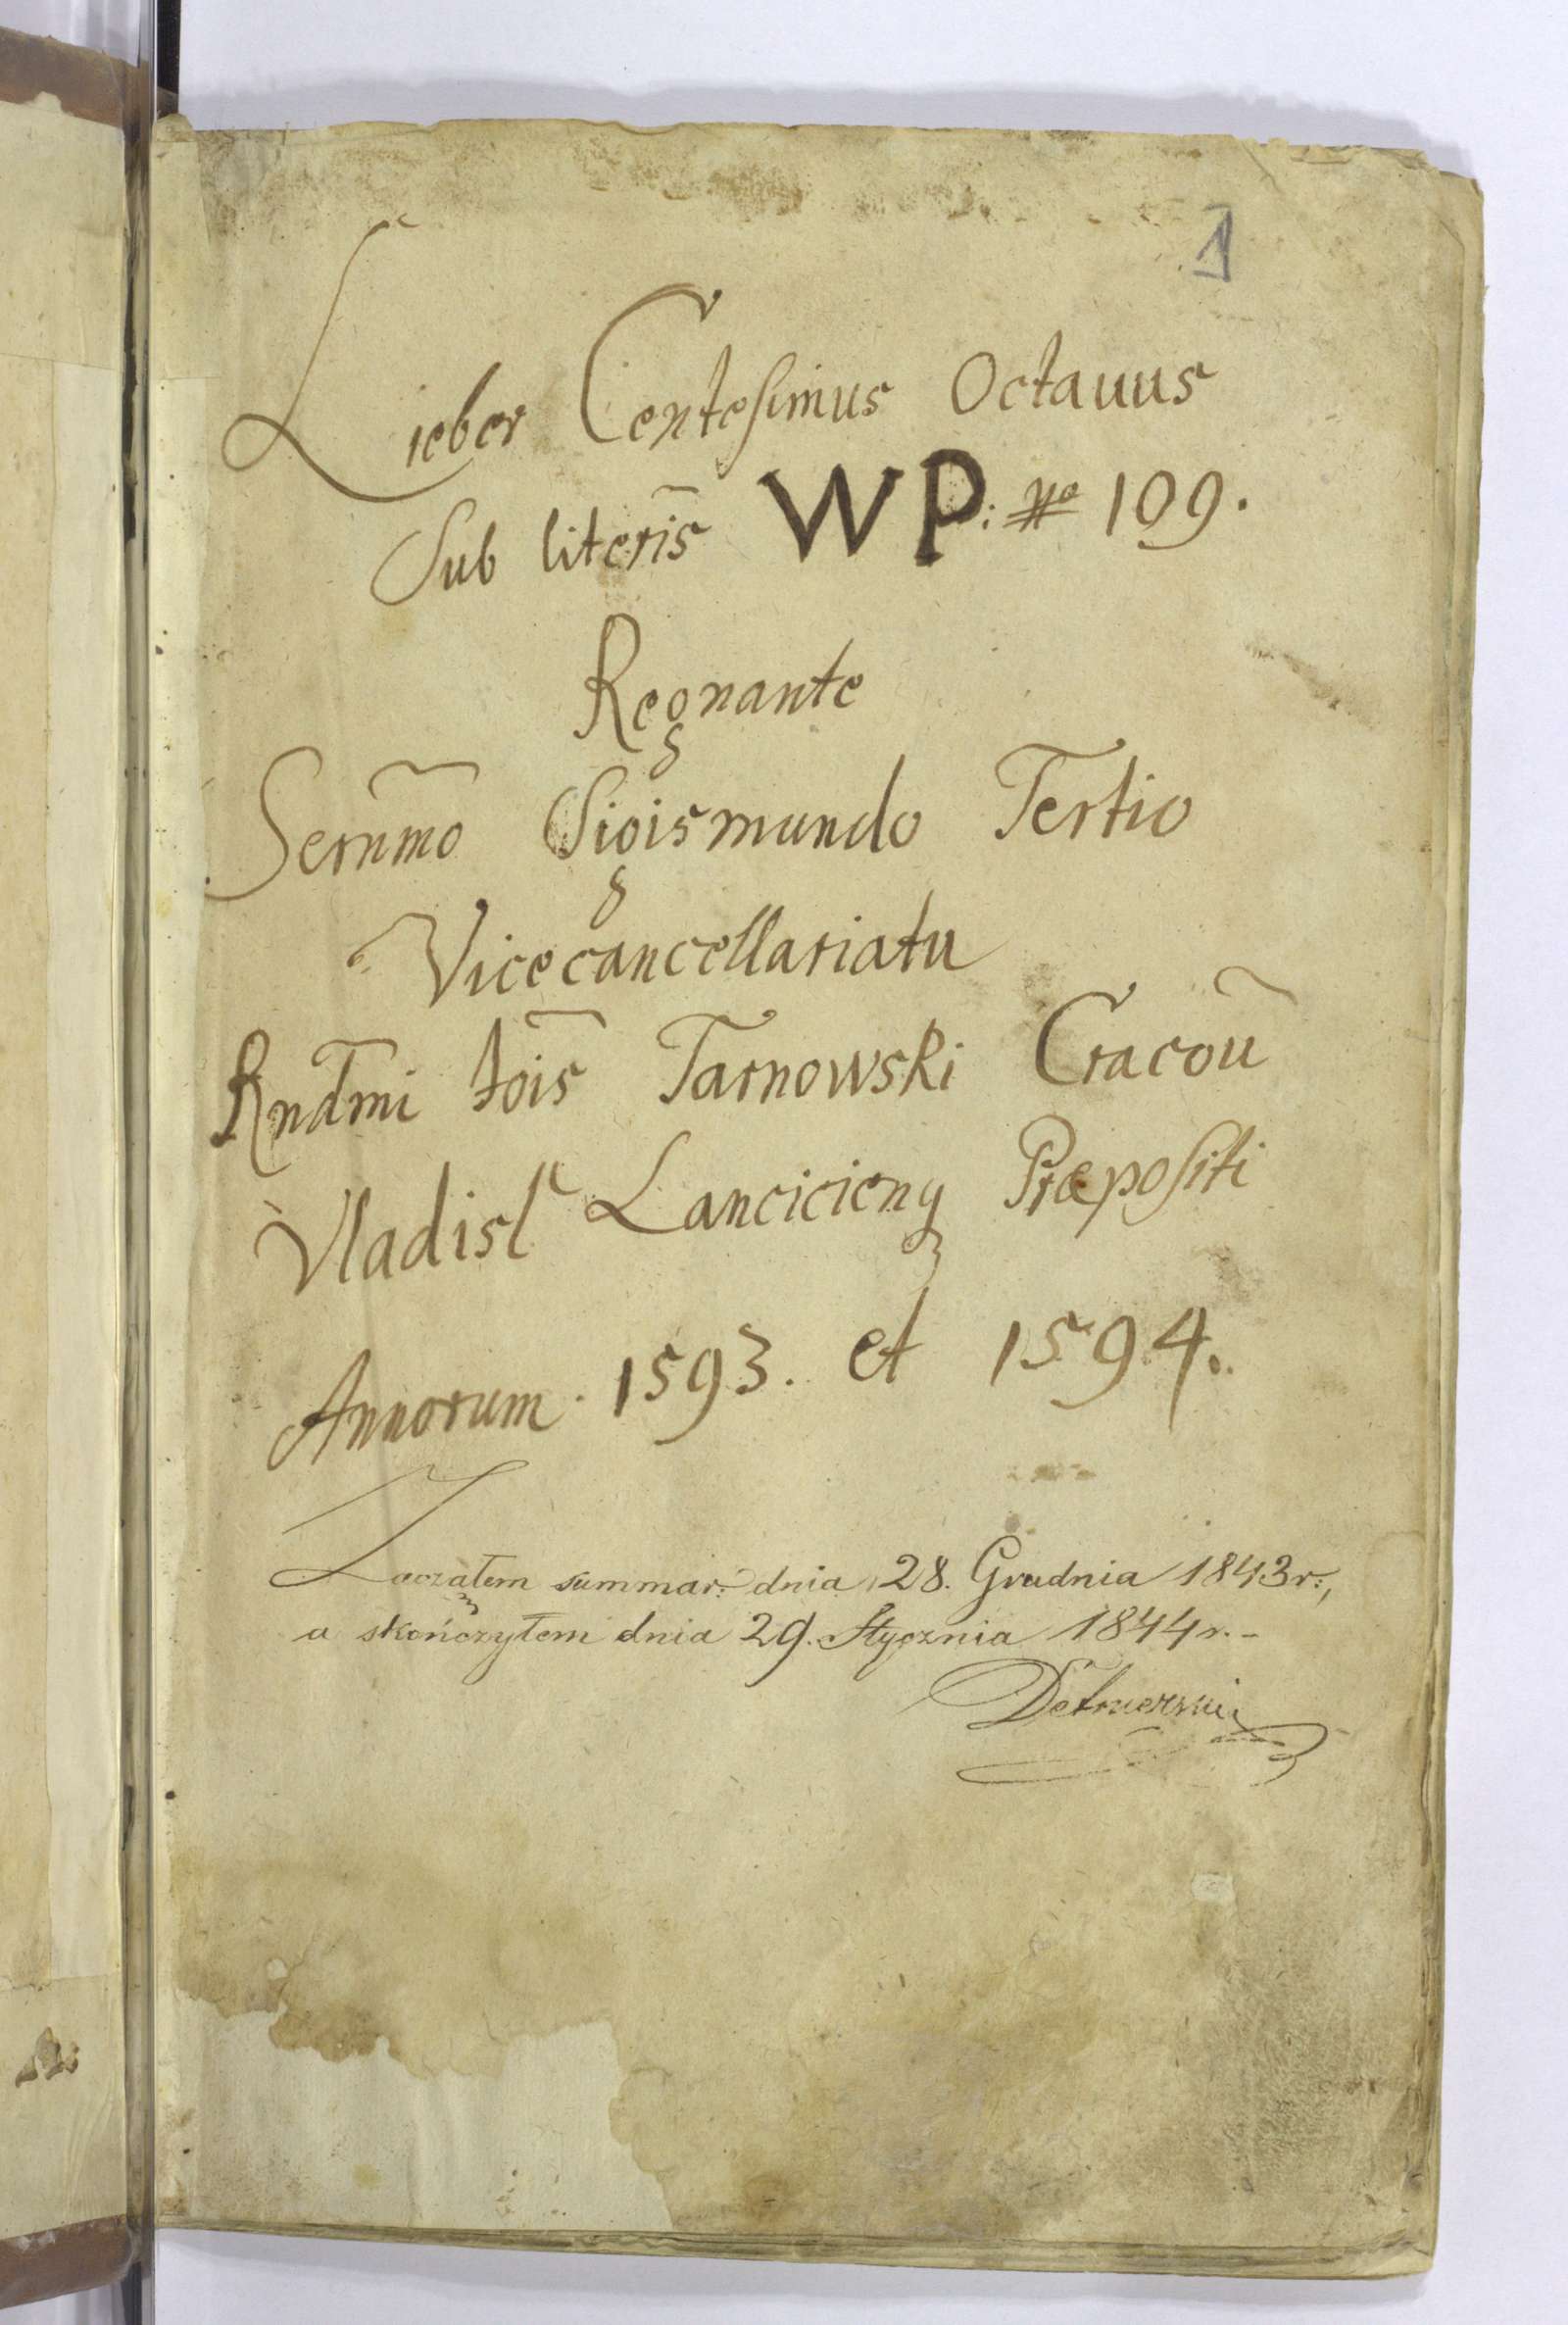 1
Lieber Centesimus Octauus
Sub literis̃ WP: No 109.
Regnante
Sern̄mo Sigismundo Tertio
Vicecancellariatu
Rnd̄mi Iōis Tarnowski Cracoū
Vladisl Lancicienq Præpositi
Annorum. 1593. et 1594.
Zacząłem summar: dnia 28. Grudnia 1843 r:,
a skończyłem dnia 29. Stycznia 1844 r.-